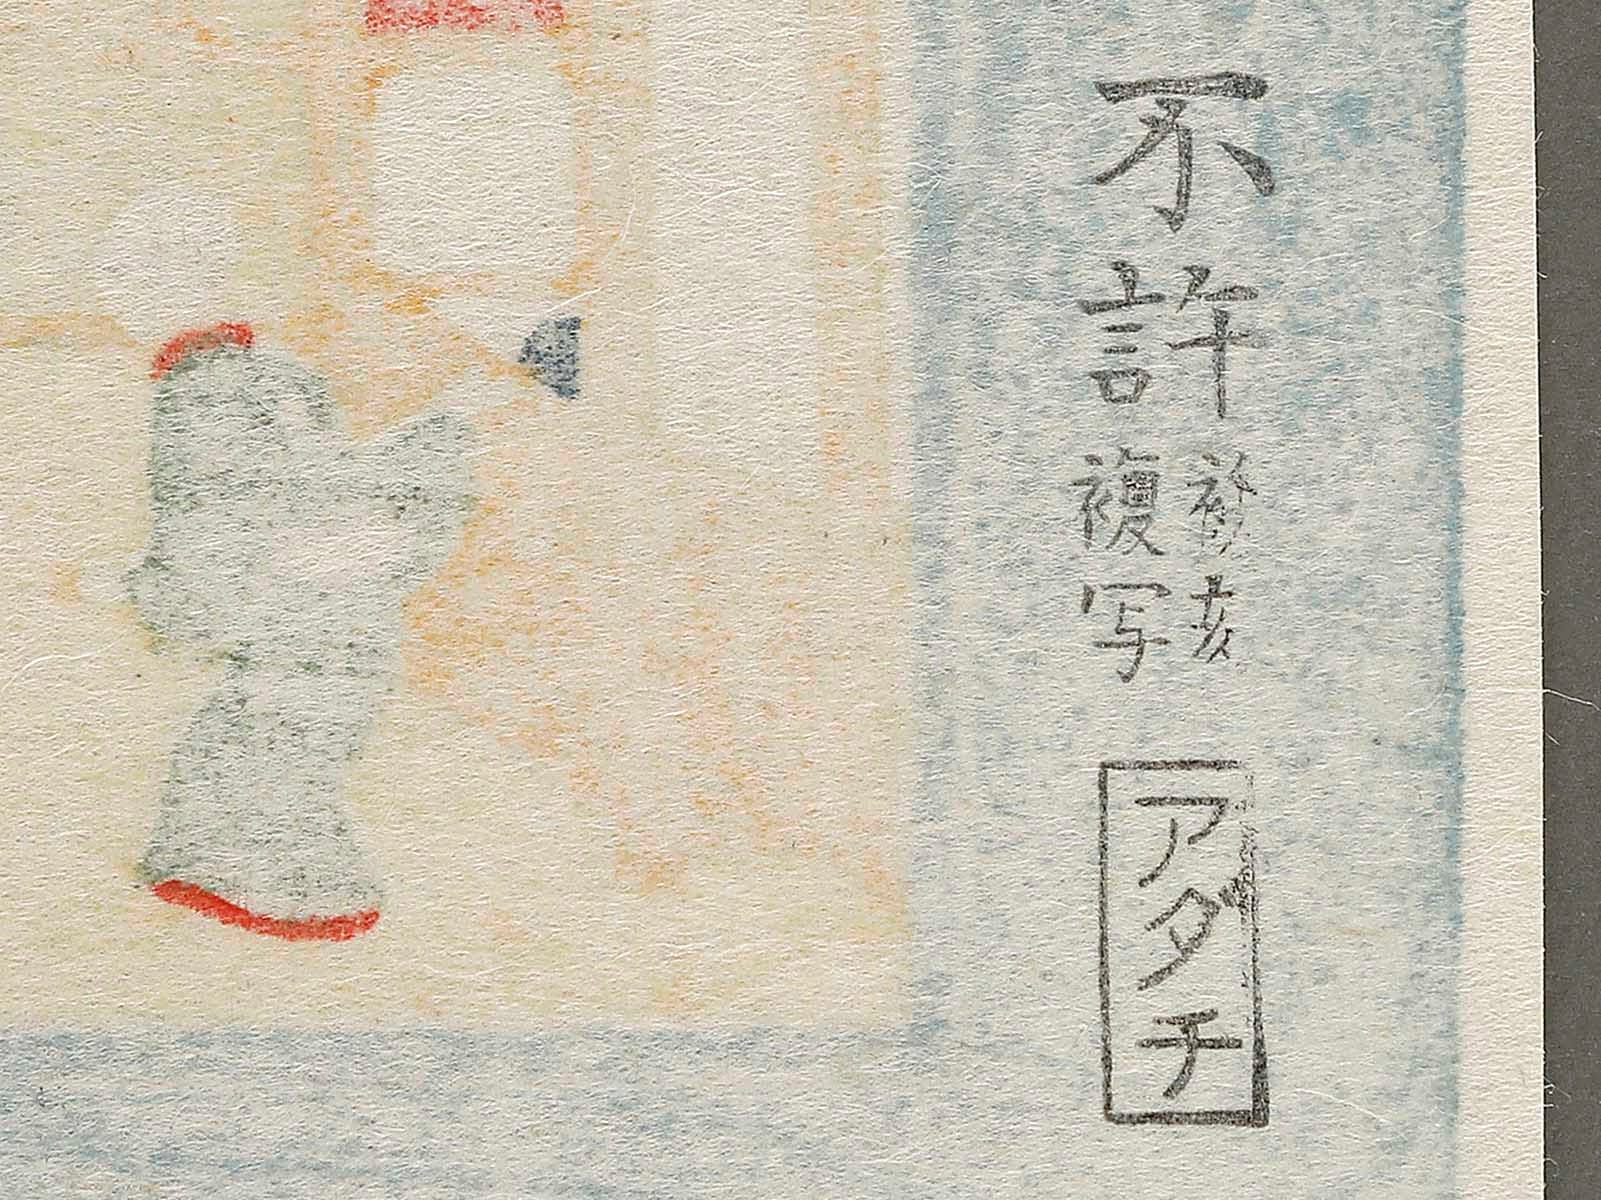 不許
複写
アダチ